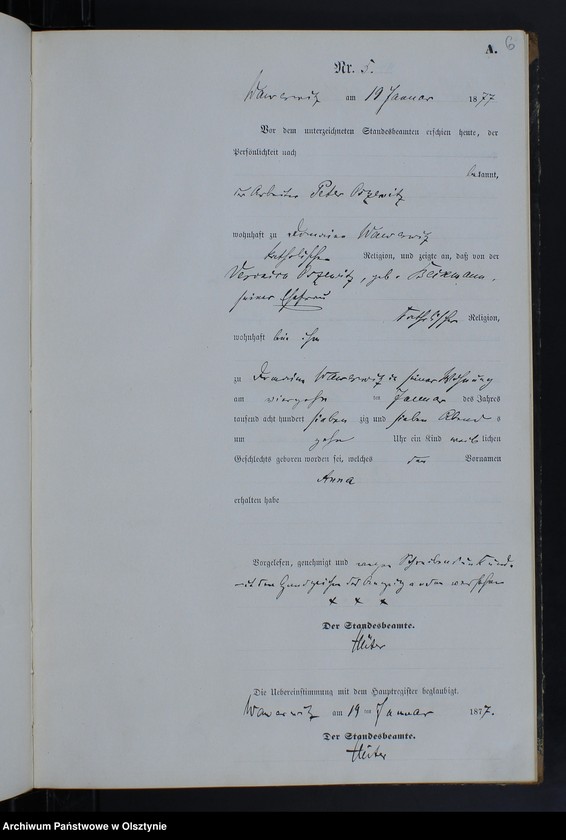 A. 6
Nr. 5.
am 19 Januar 1877
Vor dem unterzeichneten Standesbeamten erschien heute, der
Persönlichkeit nach
bekannt,
der Arbeiter Peter
wohnhaft zu Domaine
katholischer Religion, und zeigte an, daß von der
geb.
seiner Ehefrau
katholischer Religion,
wohnhaft bei ihm
zu Domaine in seiner Wohnung
am vierzehn ten Januar des Jahres
tausend acht hundert sieben zig und sieben Abend s
um zehn Uhr ein Kind weib lichen
Geschlechts geboren worden sei, welches den Vornamen
Anna
erhalten habe
Vorgelesen, genehmigt und wegen
mit dem Handzeichen des versehen
x x x
Der Standesbeamte.
Hüter
Die Uebereinstimmung mit dem Hauptregister beglaubigt.
am 19 ten Januar 1877.
Der Standesbeamte.
Hüter
Archiwum Państwowe w Olsztynie